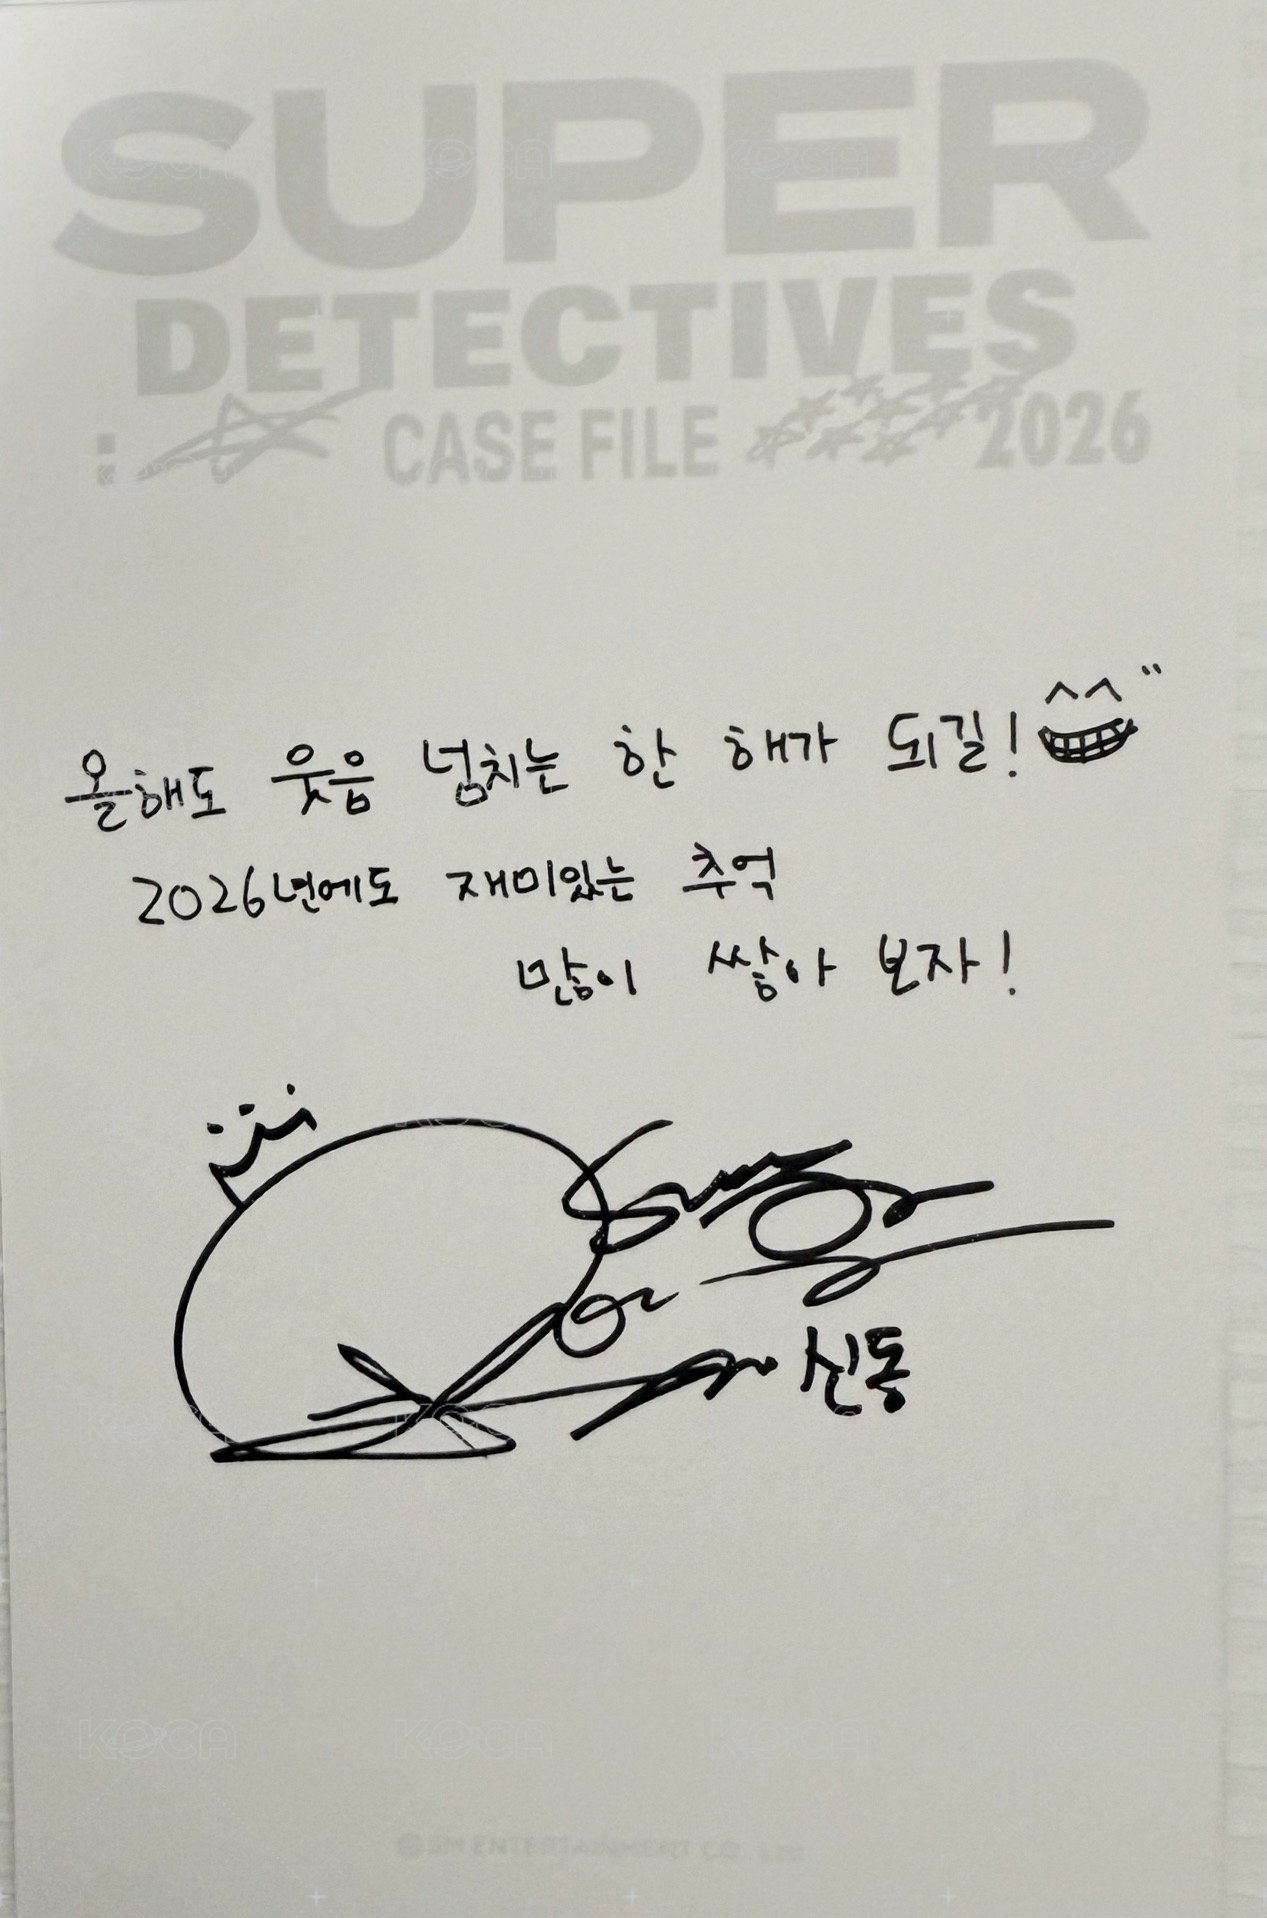 SUPER
DETECTIVES
: CASE FILE 2026
올해도 웃음 넘치는 한 해가 되길! ^^"
2026년에도 재미있는 추억
많이 쌓아 보자!
신동
KOCA KOCA KOCA KOCA
SM ENTERTAINMENT CO., Ltd.